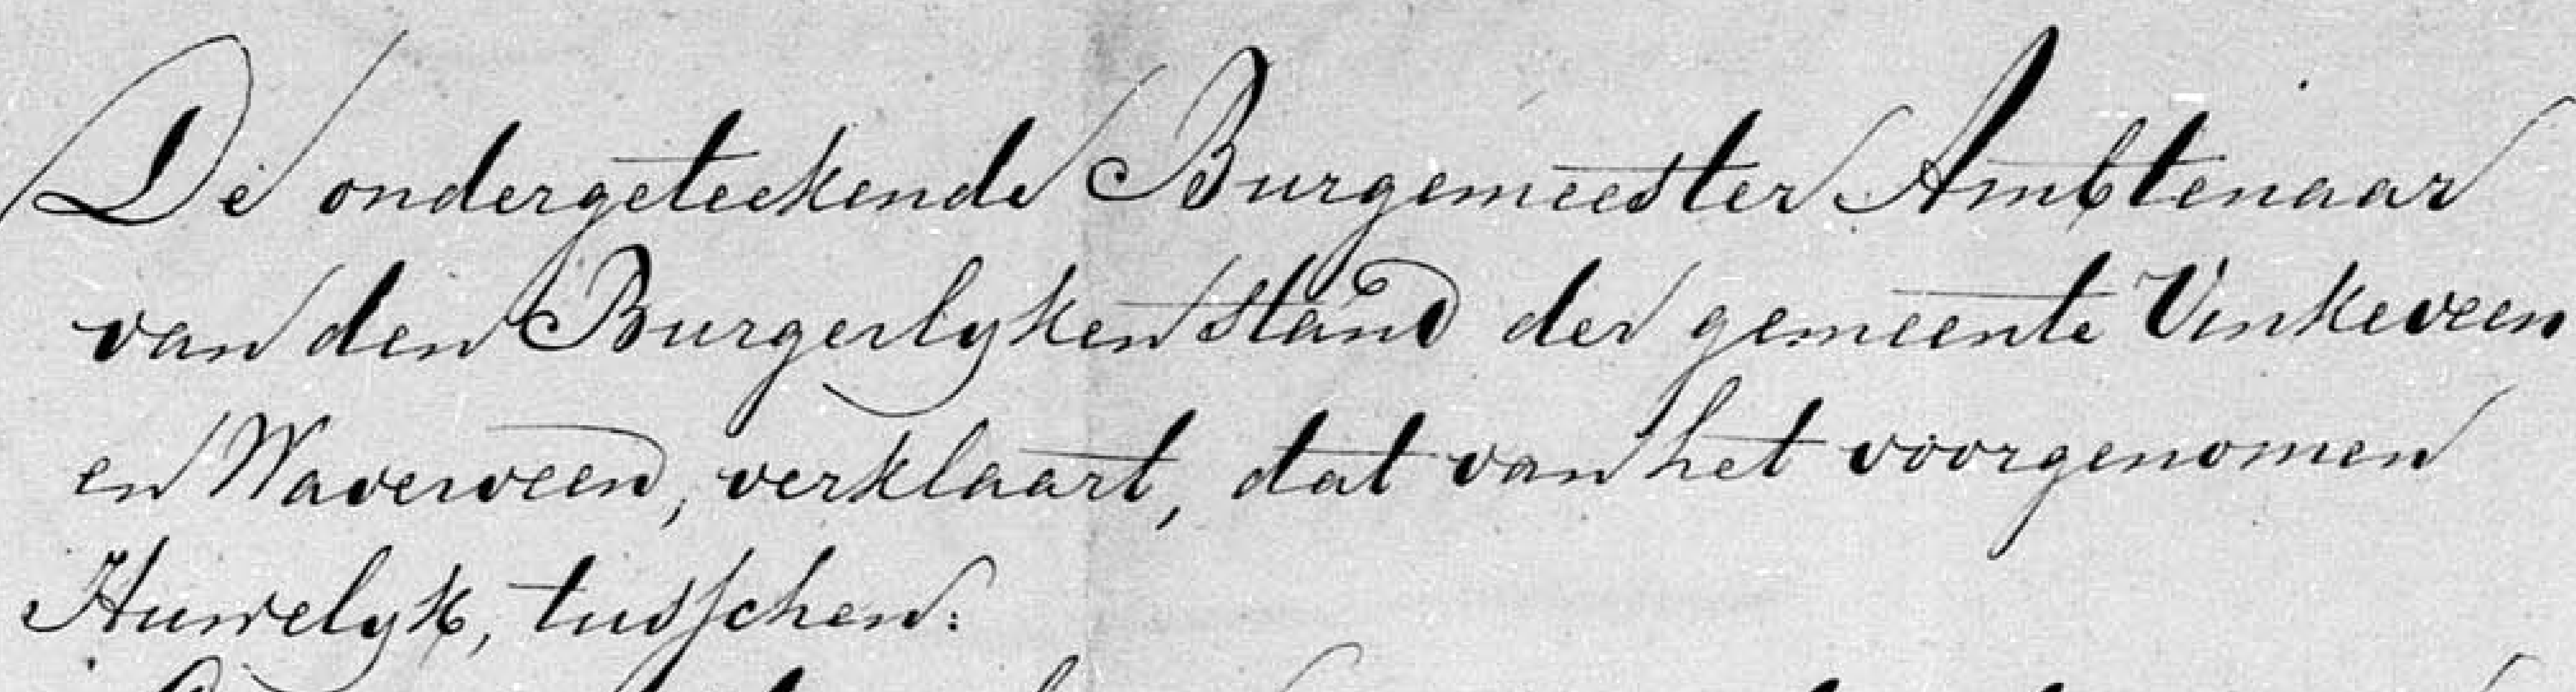 De ondergeteekende Burgemeester Ambtenaar
van den Burgerlyken stand der gemeente Vinkeveen
en Waverveen, verklaart, dat van het voorgenomen
Huwelyk, tusschen: